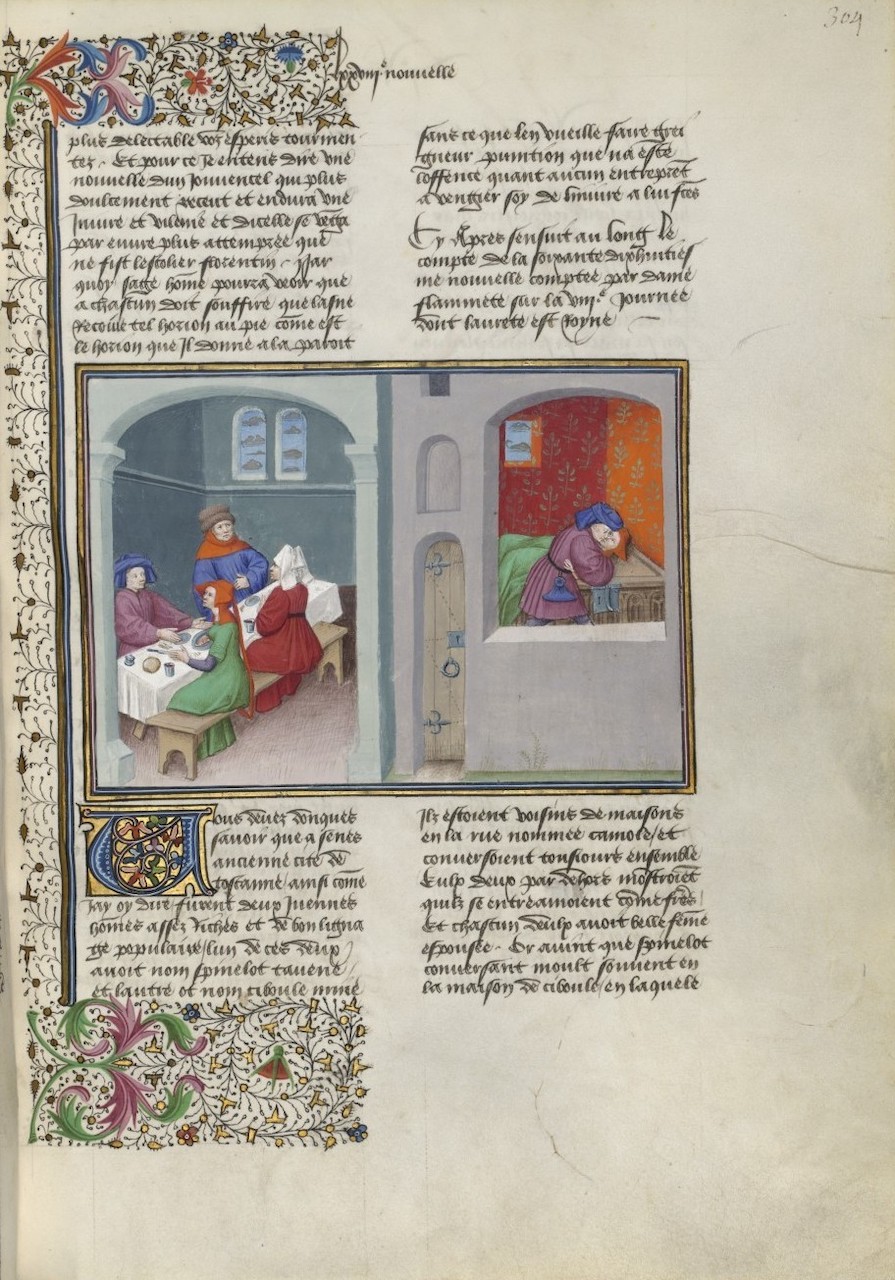 304
lxxviii.e nouuelle
plus delectable voz esperis tourmen
tez. Et pour ce Je entens dire vne
nouuelle dun Jouuencel qui plus
doulcement receut et endura vne
Iniure et vilenie et dicelle se venga
par euure plus attempree que
ne fist lescolier florentin. Par
quoy sage home pourra veoir que
a chascun doit souffire que lasne
Recoiue tel horion au pie come est
le horion que Il donne a la paroit
sans ce que len vueille faire grei
gneur punition que na este
loffence quant aucun entreprent
a vengier soy de liniure a lui fcte
Cy Apres sensuit au long Le
compte de la soixante dixhuities
me nouuelle comptee par dame
flammete sur la viii.e Journee
dont laurete est Royne
Uous deuez donques
sauoir que a senes
ancienne cite de
toscanne ainsi come
Jay oy dire furent deux Juennes
homes assez riches et de bon ligna
ge populaire lun de ces deux
auoit nom spinelot tauene
et lautre ot nom ciboule mine
Ilz estoient voisins de maisons
en la rue nommee camole et
conuersoient tousiours ensemble
Eulx deux par dehors mostroiet
quilz se entreamoient come freres
Et chascun deulx auoit belle feme
espousee. Or auint que spinelot
conuersant moult souuent en
la maison de ciboule en laquele